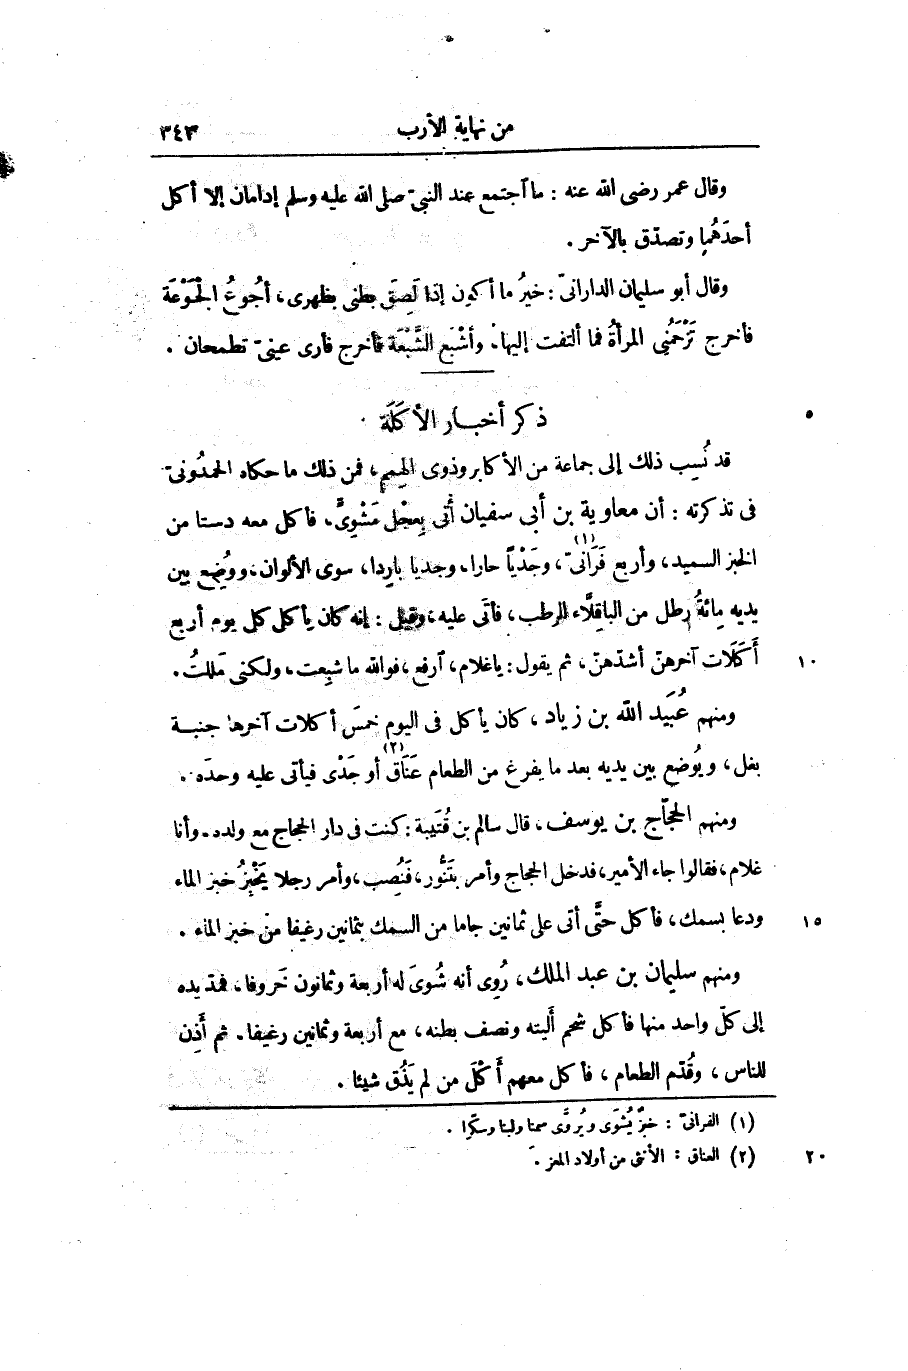 من نهاية الأرب ٣٤٣
وقال عمر رضى الله عنه : ما آجتمع عند النبىّ صلى الله عليه وسلم إدامان إلا أكل
أحدَهُما وتصدّق بالآخر .
وقال أبو سليمان الدارانىّ : خيرُ ما أكون إذا لَصِقَ بطنى بظهرى، أجُوعُ الجَوْعَة
فأخرج تَزْحَمُنِى المرأةُ فما ألتفت إليها. وأشْبَع الشَّبْعَة فأخرج فأرى عينىّ تطمحان .
ذكر أخبار الأكَلَة
٥
قد نُسِب ذلك إلى جماعة من الأكابر وذوى الهِمِم، فمن ذلك ما حكاه الحمدُونىّ
فى تذكرته : أن معاوية بن أبى سفيان أُتى بِعِجْلٍ مَشْوِىٍّ، فأكل معه دستا من
الخبز السميد، وأربع فَرَانىّ(١)، وجَدْيًا حارا، وجديا باردا، سوى الألوان، ووُضِع بين
يديه مِائةُ رطل من الباقلّاء الرطب، فأتَى عليه، وقيل : إنه كان يأكل كل يوم أربع
أَكَلَات آخرهنّ أشدّهنّ، ثم يقول : ياغلام، آرفع، فوالله ما شبِعت، ولكنى مَلِلتُ.
١٠
ومنهم عُبَيد الله بن زياد، كان يأكل فى اليوم خمسَ أكلات آخرها جنبة
بغل، ويُوضع بين يديه بعد ما يفرغ من الطعام عَنَاق(٢) أو جَدْى فيأتى عليه وحدَه .
ومنهم الحجّاج بن يوسف، قال سالم بن قُتَيبة : كنت فى دار الحجاج مع ولده وأنا
غلام، فقالوا جاء الأمير، فدخل الحجاج وأمر بتَنُّور، فنُصِب، وأمر رجلا يَخْبِزُ خبز الماء
ودعا بسمك، فأكل حتَّى أتى على ثمانين جاما من السمك بثمانين رغيفا من خبز الماء .
١٥
ومنهم سليمان بن عبد الملك، رُوِى أنه شُوىَ له أربعة وثمانون خَروفا، فمدّ يده
إلى كلّ واحد منها فأكل شحم ألْيته ونصف بطنه، مع أربعة وثمانين رغيفا. ثم أَذِن
للناس، وقُدّم الطعام، فأكل معهم أَكْلَ من لم يَذُق شيئا .
(١) الفرانىّ : خبزٌ يُشْوَى ويُروَّى سمنا ولبنا وسكّرا .
(٢) العناق : الأنثى من أولاد المعز .
٢٠